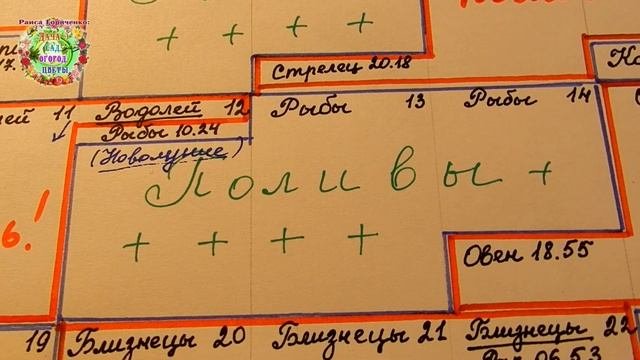 Раиса Горяченко:
ДАЧА
САД
ОГОРОД
ЦВЕТЫ
+ + + +
Стрелец 20.18
11 Водолей 12 Рыбы 13 Рыбы 14
Рыбы 10.24
(Новолуние)
Поливы +
ь!
+ + + +
Овен 18.55
19 Близнецы 20 Близнецы 21 Близнецы 22